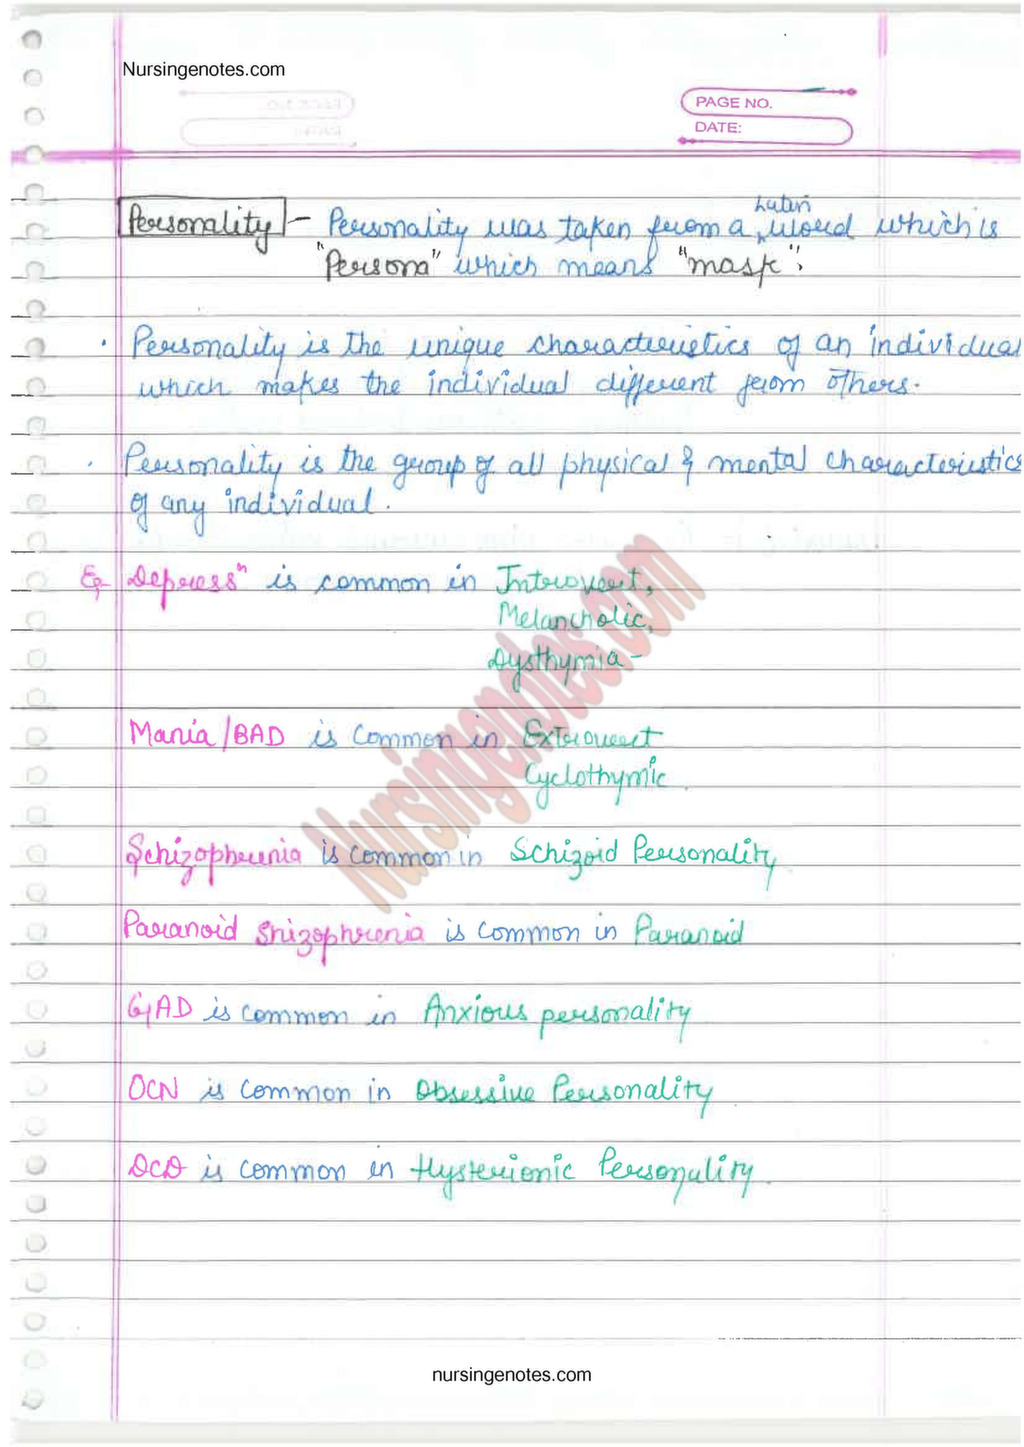 Nursingenotes.com
PAGE NO.
DATE:
Personality - Personality was taken from a Latin word which is
"Persona" which means "mask".
. Personality is the unique characteristics of an individual
which makes the individual different from others.
. Personality is the group of all physical & mental characteristics
of any individual.
Eg- Depress" is common in Introvert,
Melancholic,
Dysthymia -
Mania/BAD is common in Extrovert
Cyclothymic.
Schizophrenia is common in Schizoid Personality
Paranoid Shizophrenia is common in Paranoid
GAD is common in Anxious personality
OCN is common in Obsessive Personality
DCD is common in Hysterionic Personality.
Nursingenotes.com
nursingenotes.com